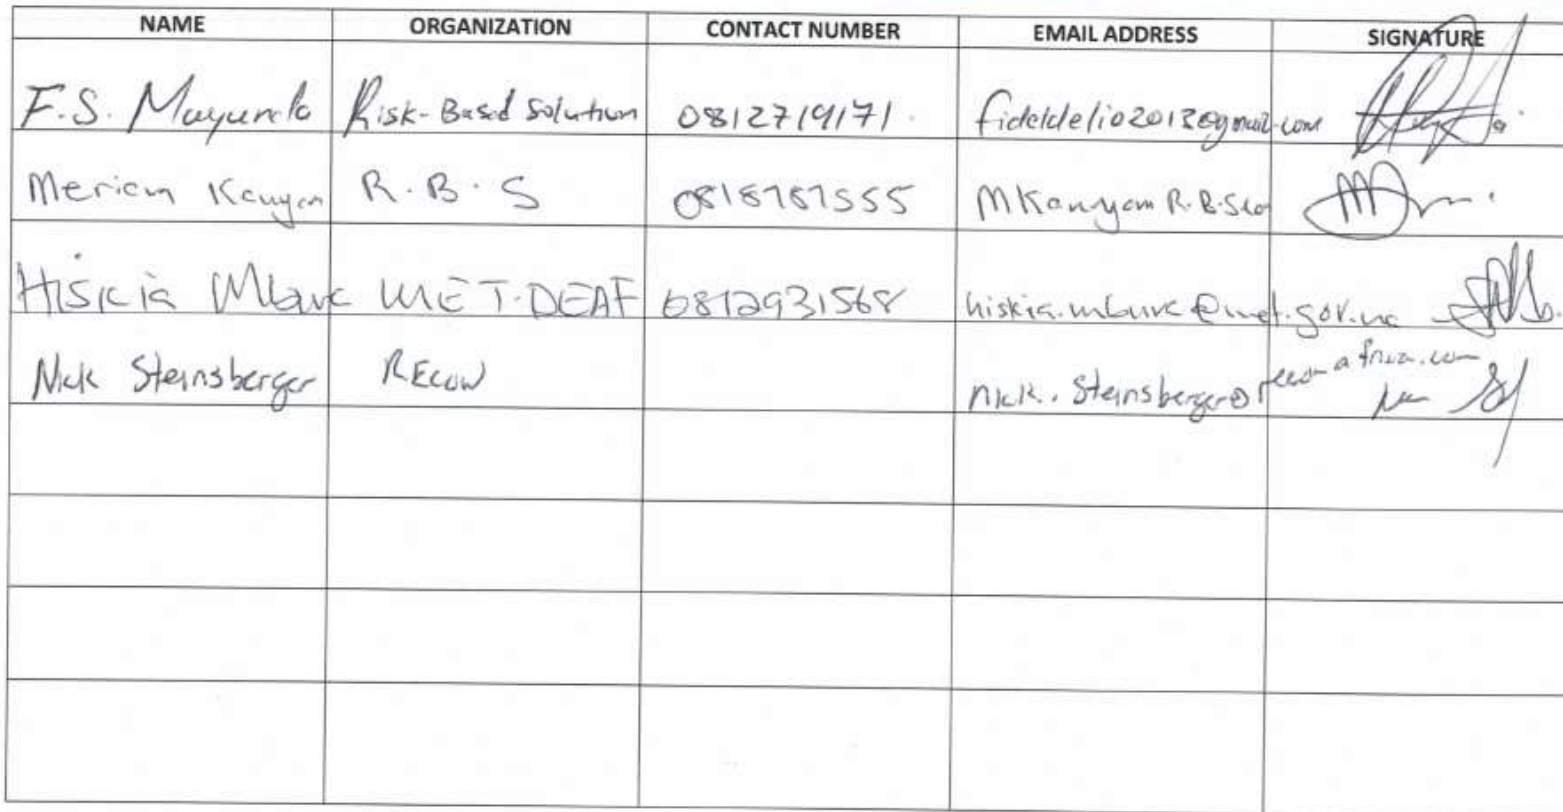 NAME ORGANIZATION CONTACT NUMBER EMAIL ADDRESS SIGNATURE
F.S. Risk-Based Solution 0812719171 fideldelio2013@gmail.com
R.B.S 0818787555
Hiskia MET-DEAF 0812931568 @met.gov.na
Nick Steinsberger RECON nick.steinsberger@reconafrica.com